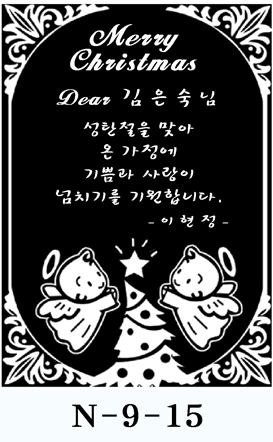 Merry
Christmas
Dear 김 은 숙 님
성탄절을 맞아
온 가정에
기쁨과 사랑이
넘치기를 기원합니다.
- 이 현 정 -
N-9-15